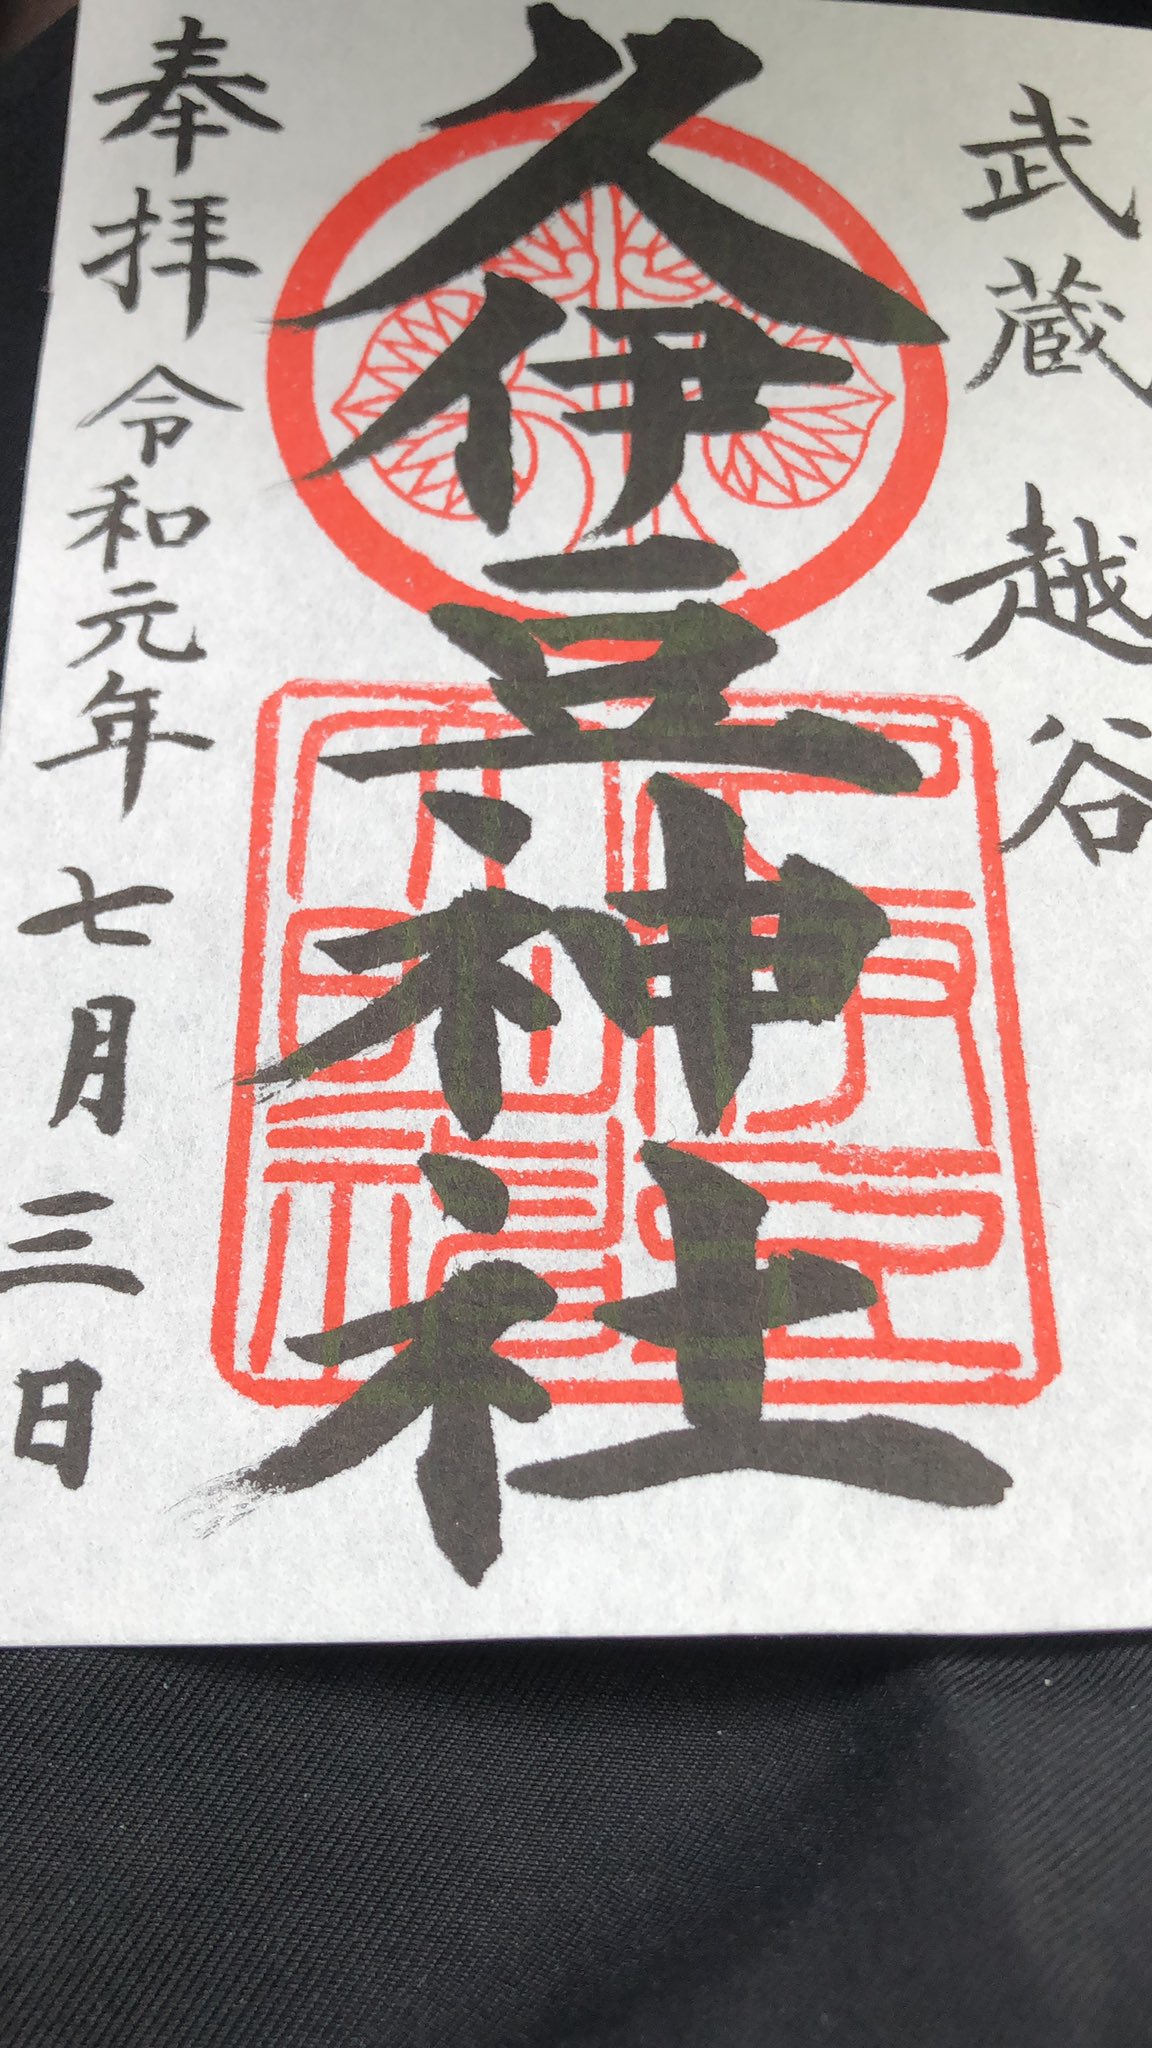 武蔵越谷
久伊豆神社
奉拝 令和元年七月三日